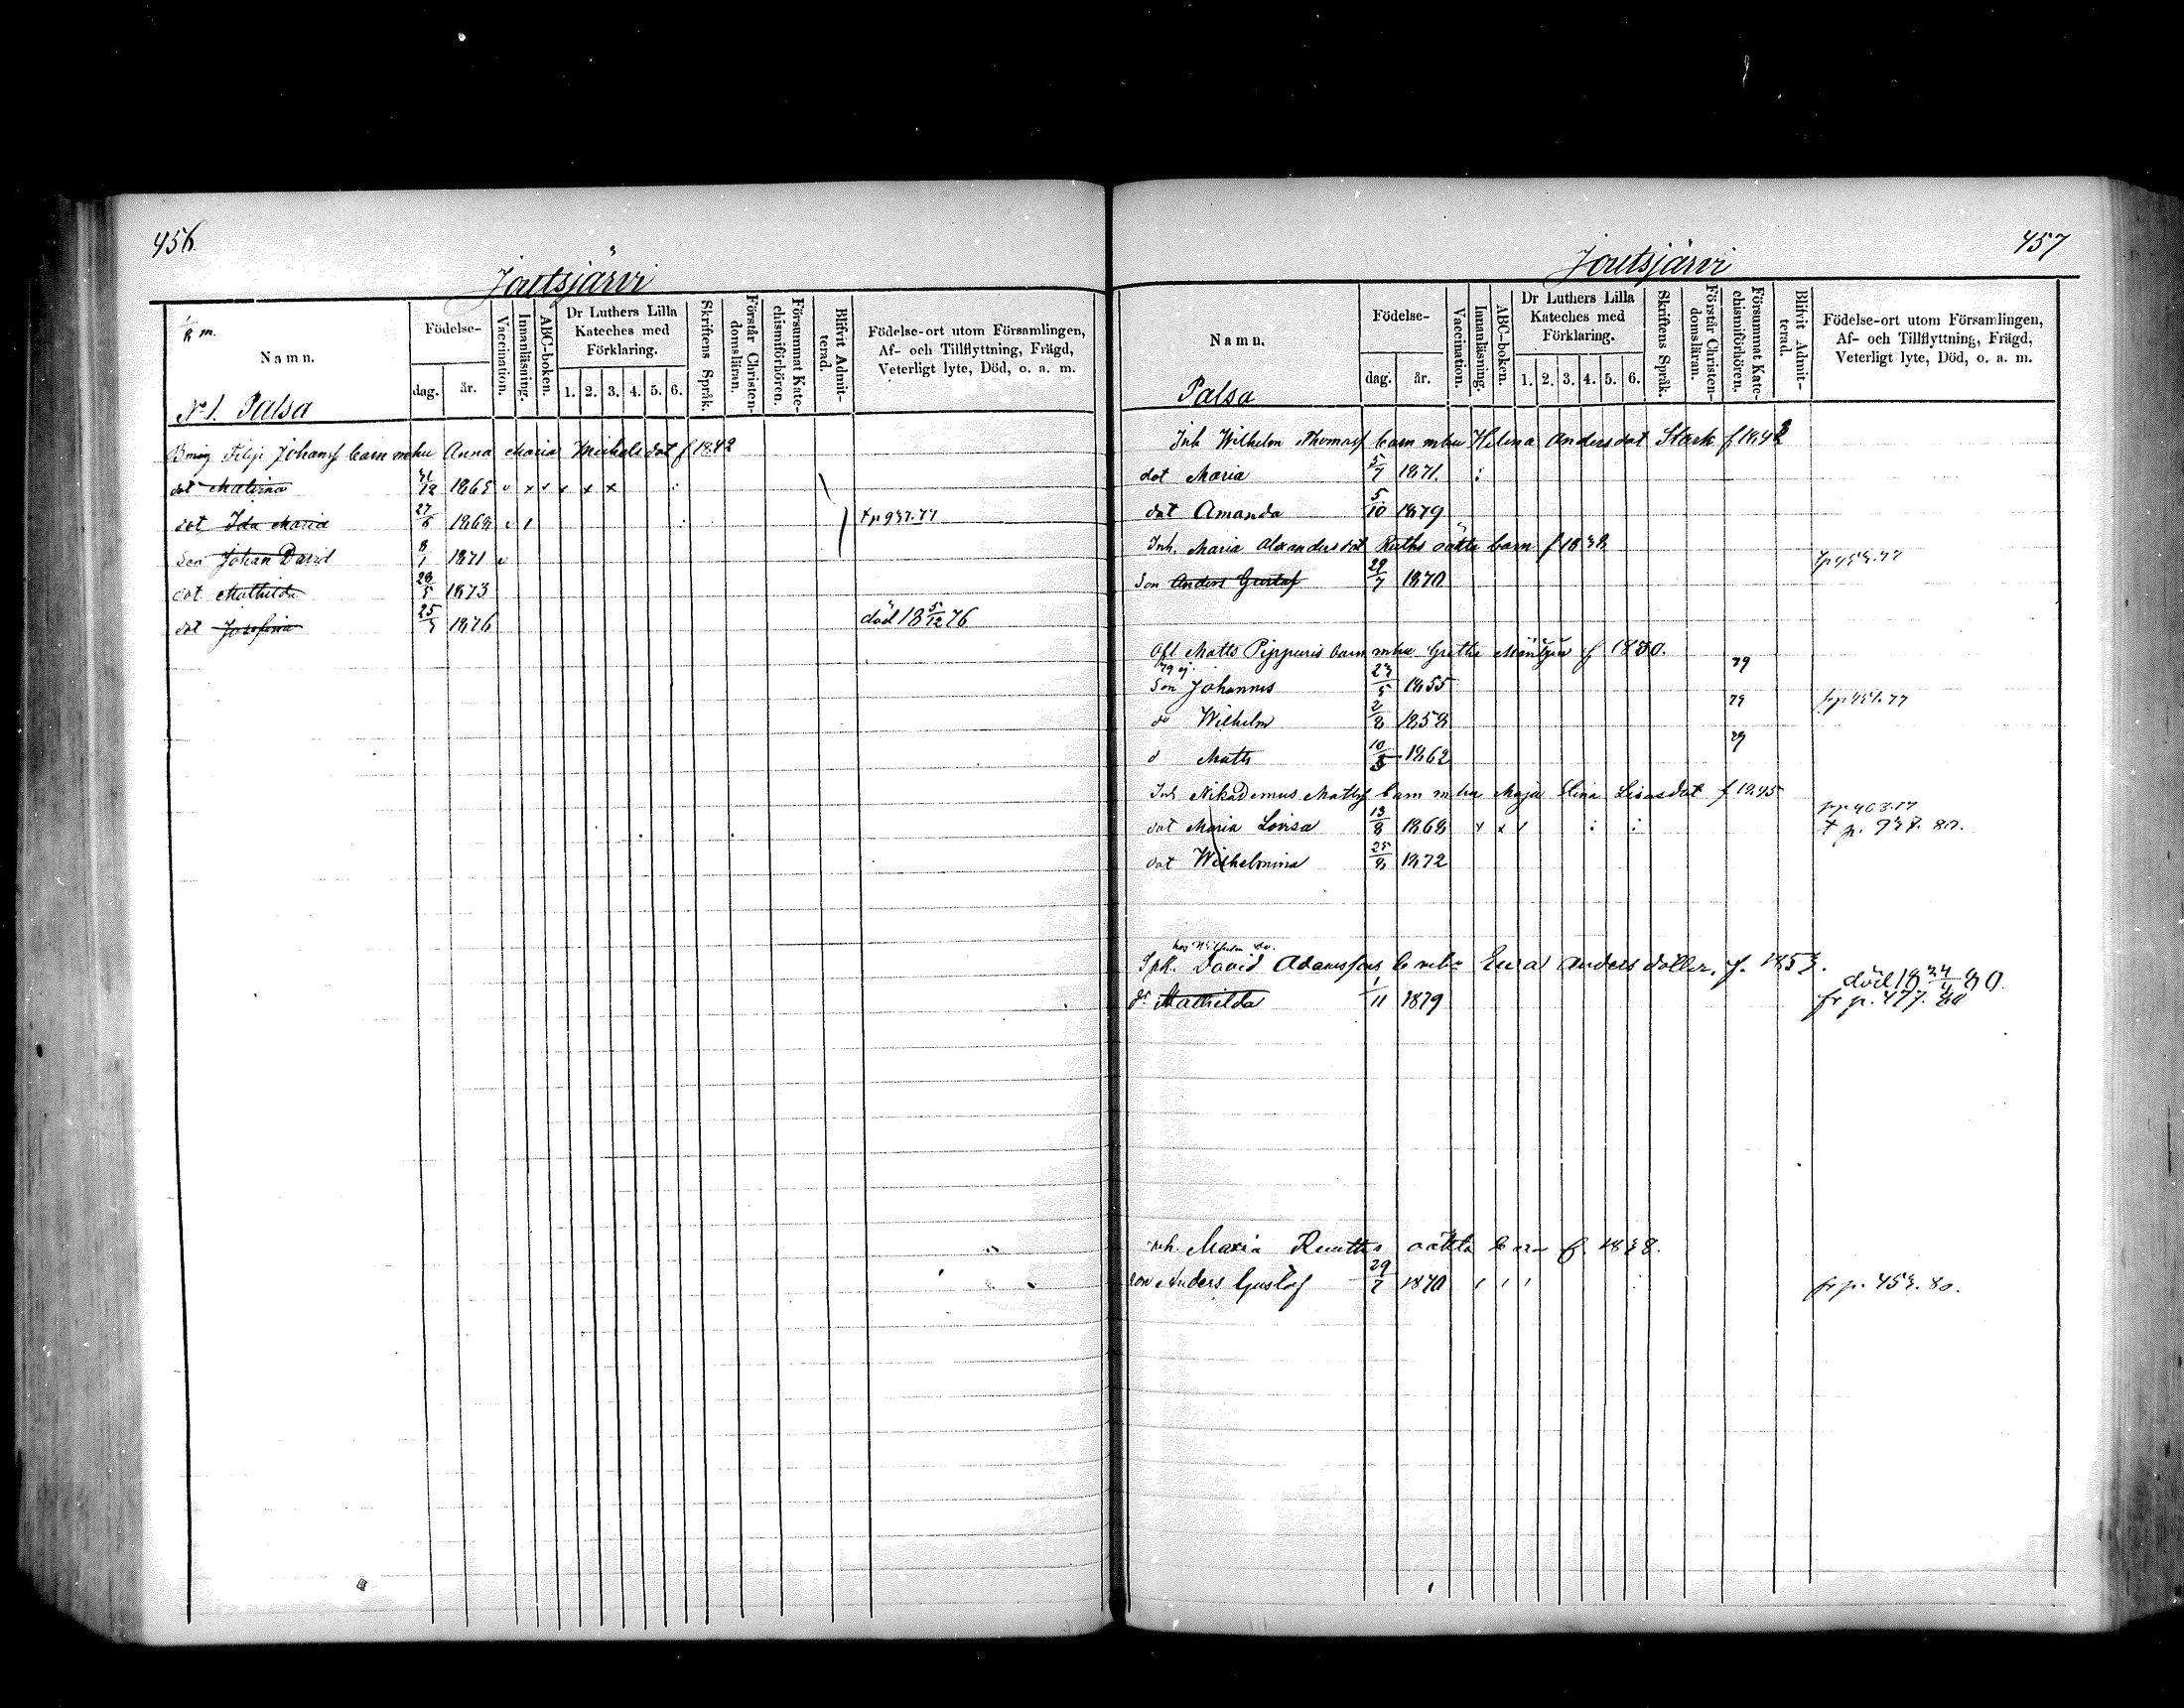 456
Joutsjärvi
Namn.
Födelse-
dag.
år.
Vaccination.
Innanläsning.
ABC-boken.
Dr Luthers Lilla Kateches med Förklaring.
1. 2. 3. 4. 5. 6.
Skriftens Språk.
Förstår Christendomsläran.
Försummat Katechismiförhören.
Blifvit Admitterad.
Födelse-ort utom Församlingen, Af- och Tillflyttning, Frägd, Veterligt lyte, Död, o. a. m.
No 1. Palsa
Filip Johansf barn m hu Anna Maria Michelsdot f 1842
dot Malvina 31/12 1865
dot Ida Maria 27/6 1868 tr p 937.77
Son Johan David 8/1 1871
dot Mathilda 28/5 1873
dot Josefina 25/3 1876 död 18 5/12 76
457
Joutsjärvi
Namn.
Födelse-
dag.
år.
Vaccination.
Innanläsning.
ABC-boken.
Dr Luthers Lilla Kateches med Förklaring.
1. 2. 3. 4. 5. 6.
Skriftens Språk.
Förstår Christendomsläran.
Försummat Katechismiförhören.
Blifvit Admitterad.
Födelse-ort utom Församlingen, Af- och Tillflyttning, Frägd, Veterligt lyte, Död, o. a. m.
Palsa
Inh Wilhelm Thomasf barn m hu Helena Andersdot Stark
dot Maria 5/7 1871.
dot Amanda 5/10 1879
Inh. Maria Alexandersdot Ruths oäkta barn f 1838
Son Anders Gustaf 29/7 1870
Afl Matts Pippuris barn m hu Gretha f 1830.
Son Johannes 23/5 1855 79
do Wilhelm 2/8 1858 79
d Matts 10/3 1862 79
Inh Nikodemus Mattsf barn m hu Maja Elina f 1845
dot Maria Lovisa 13/8 1868 fr p 463.77
t p. 937. 80.
dot Wilhelmina 25/8 1872
hos Wilhelm
Spk. David Adamssons b m hu Eeva Andersdotter, f. 1853.
dr Mathilda 1/11 1879 död 18 24/4 80.
fr p. 477. 80
inh. Maria Ruuths oäkta barn f. 1838.
son Anders Gustaf 29/7 1870 fr p. 453. 80.